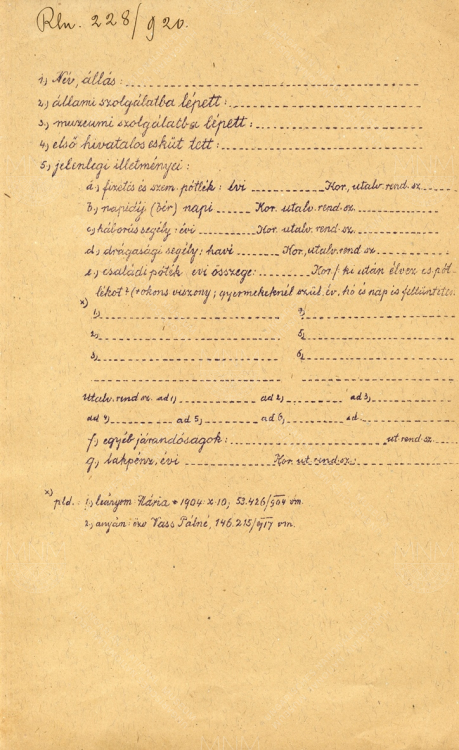 Rln. 228/920.
1, Név, állás:
2, állami szolgálatba lépett:
3, muzeumi szolgálatba lépett:
4, első hivatalos esküt tett:
5, jelenlegi illetményei:
a, fizetés és szem. pótlék: évi Kor, utalv. rend. sz.
b, napidíj (bér) napi Kor. utalv. rend. sz.
c, háborús segély: évi Kor. utalv. rend. sz.
d, drágasági segély: havi Kor, utalv. rend sz.
e, családi pótlék évi összege: Kor./ ki után élvez cs. pót-
lékot + (rokons. viszony; gyermekeknél szül. év. hó és nap is feltünteten
x) 1, 4,
2, 5,
3, 6,
Utalv. rend. sz. ad 1, ad 2, ad 3,
ad 4, ad 5, ad 6, ad
f, egyéb járandóságok: ut. rend. sz.
g, lakpénz, évi Kor. ut. rend. sz.
x) pld.: 1, leányom Mária * 1904. X. 10; 53.426/904 vm.
2, anyám: özv. Vass Pálné, 146.215/917 vm.